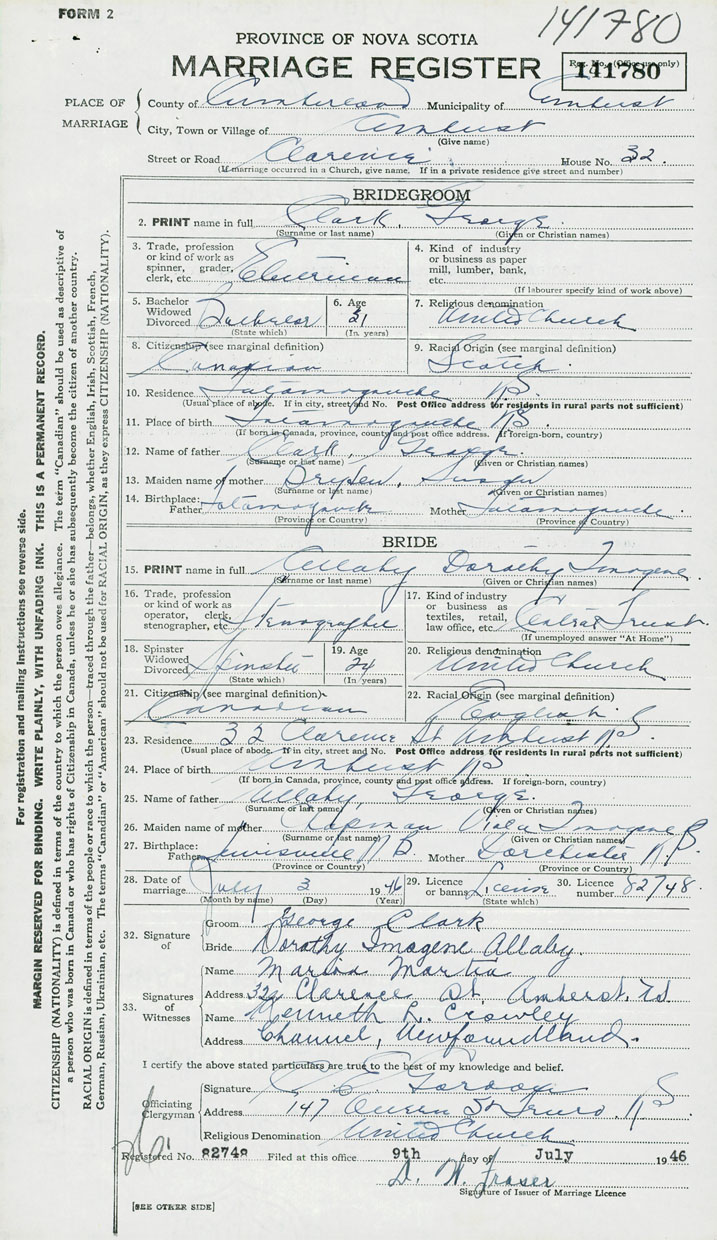 FORM 2
141780
PROVINCE OF NOVA SCOTIA
MARRIAGE REGISTER
Reg. No. (Office use only)
141780
PLACE OF MARRIAGE
County of Cumberland Municipality of Amherst
City, Town or Village of Amherst
(Give name)
Street or Road Clarence House No. 32
(If marriage occurred in a Church, give name. If in a private residence give street and number)
BRIDEGROOM
2. PRINT name in full Clark, George
(Surname or last name) (Given or Christian names)
3. Trade, profession or kind of work as spinner, grader, clerk, etc.
4. Kind of industry or business as paper mill, lumber, bank, etc.
(If labourer specify kind of work above)
5. Bachelor Widowed Divorced Bachelor
(State which)
6. Age 21
(In years)
7. Religious denomination United Church
8. Citizenship (see marginal definition) Canadian
9. Racial Origin (see marginal definition) Scotch
10. Residence Tatamagouche N S
(Usual place of abode. If in city, street and No. Post Office address for residents in rural parts not sufficient)
11. Place of birth Tatamagouche N S
(If born in Canada, province, county and post office address. If foreign-born, country)
12. Name of father Clark, George
(Surname or last name) (Given or Christian names)
13. Maiden name of mother
(Surname or last name) (Given or Christian names)
14. Birthplace: Father Tatamagouche Mother Tatamagouche
(Province or Country) (Province or Country)
BRIDE
15. PRINT name in full Allaby Dorothy Imogene
(Surname or last name) (Given or Christian names)
16. Trade, profession or kind of work as operator, clerk, stenographer, etc. Stenographer
17. Kind of industry or business as textiles, retail, law office, etc. Central Trust
(If unemployed answer "At Home")
18. Spinster Widowed Divorced Spinster
(State which)
19. Age 24
(In years)
20. Religious denomination United Church
21. Citizenship (see marginal definition) Canadian
22. Racial Origin (see marginal definition) English
23. Residence 32 Clarence St Amherst N S
(Usual place of abode. If in city, street and No. Post Office address for residents in rural parts not sufficient)
24. Place of birth Amherst N S
(If born in Canada, province, county and post office address. If foreign-born, country)
25. Name of father Allaby, George
(Surname or last name) (Given or Christian names)
26. Maiden name of mother Chapman Viola Imogene
(Surname or last name) (Given or Christian names)
27. Birthplace: Father Lewisville N B Mother Dorchester N B
(Province or Country) (Province or Country)
28. Date of marriage July 3 1946
(Month by name) (Day) (Year)
29. Licence or banns License
(State which)
30. Licence number 82748
32. Signature of
Groom George Clark
Bride Dorothy Imogene Allaby
33. Signatures of Witnesses
Name Martin
Address 32 Clarence St. Amherst, N.S
Name Kenneth L. Crowley
Address Channel, Newfoundland.
I certify the above stated particulars are true to the best of my knowledge and belief.
Officiating Clergyman
Signature
Address 147 Queen St Truro. N S
Religious Denomination United Church
Registered No. 82748 Filed at this office 9th day of July 1946
D. W. Fraser
Signature of Issuer of Marriage Licence
[SEE OTHER SIDE]
For registration and mailing instructions see reverse side.
MARGIN RESERVED FOR BINDING. WRITE PLAINLY, WITH UNFADING INK. THIS IS A PERMANENT RECORD.
CITIZENSHIP (NATIONALITY) is defined in terms of the country to which the person owes allegiance. The term "Canadian" should be used as descriptive of
a person who was born in Canada or who has rights of Citizenship in Canada, unless he or she has subsequently become the citizen of another country.
RACIAL ORIGIN is defined in terms of the people or race to which the person—traced through the father—belongs, whether English, Irish, Scottish, French,
German, Russian, Ukrainian, etc. The terms "Canadian" or "American" should not be used for RACIAL ORIGIN, as they express CITIZENSHIP (NATIONALITY).